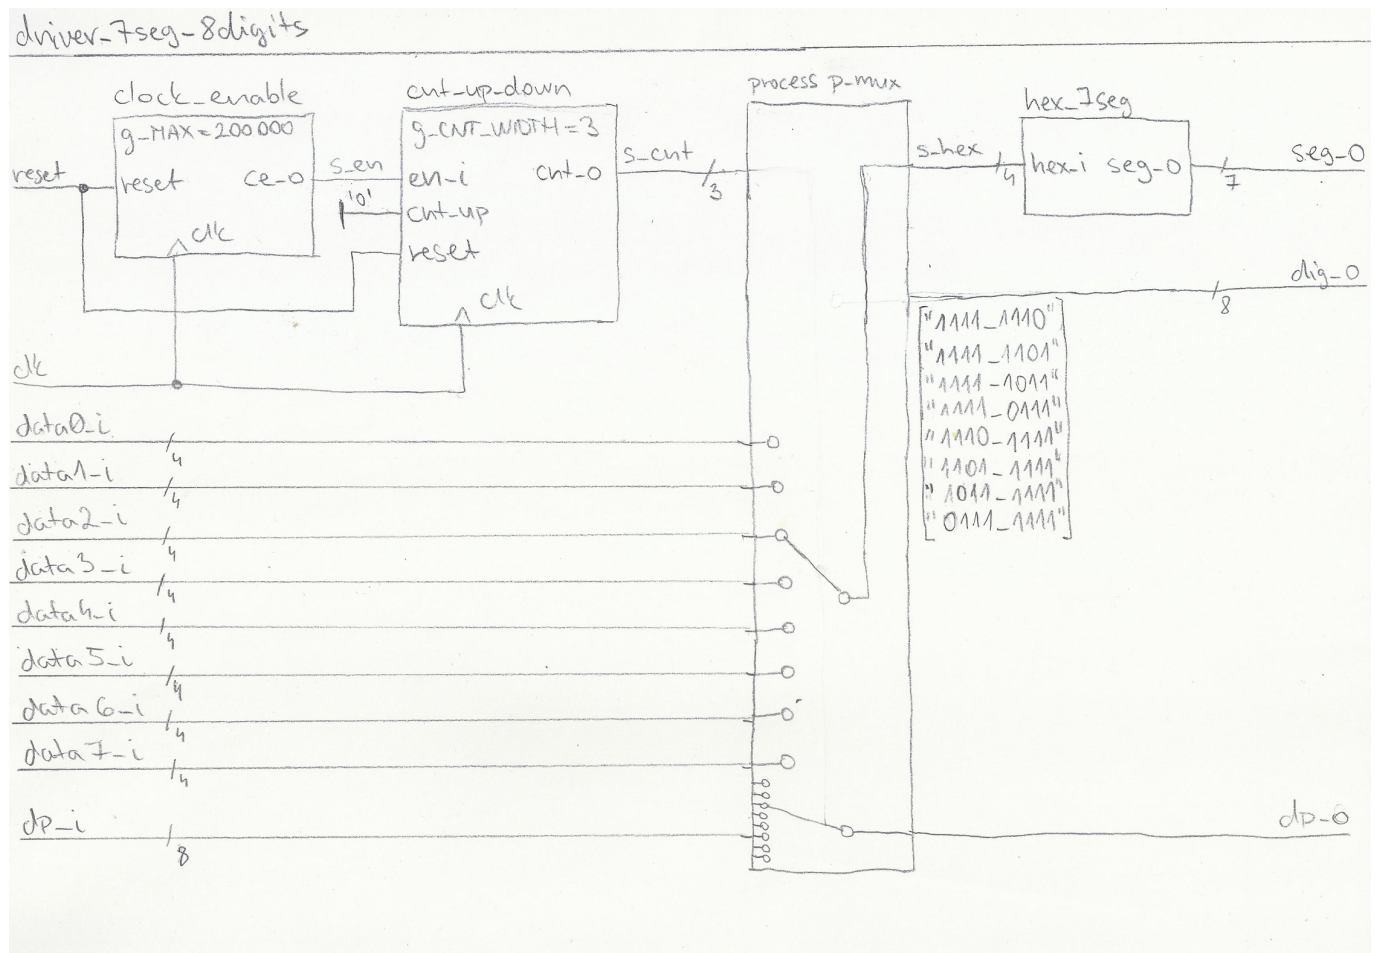 driver_7seg_8digits
clock_enable
g_MAX=200000
reset
reset
ce_o
clk
s_en
'0'
cnt_up_down
g_CNT_WIDTH=3
en_i
cnt_o
cnt_up
reset
clk
s_cnt
3
process p_mux
s_hex
4
hex_7seg
hex_i seg_o
7
seg_o
dig_o
8
"1111_1110"
"1111_1101"
"1111_1011"
"1111_0111"
"1110_1111"
"1101_1111"
"1011_1111"
"0111_1111"
clk
data0_i
4
data1_i
4
data2_i
4
data3_i
4
data4_i
4
data5_i
4
data6_i
4
data7_i
4
dp_i
8
dp_o